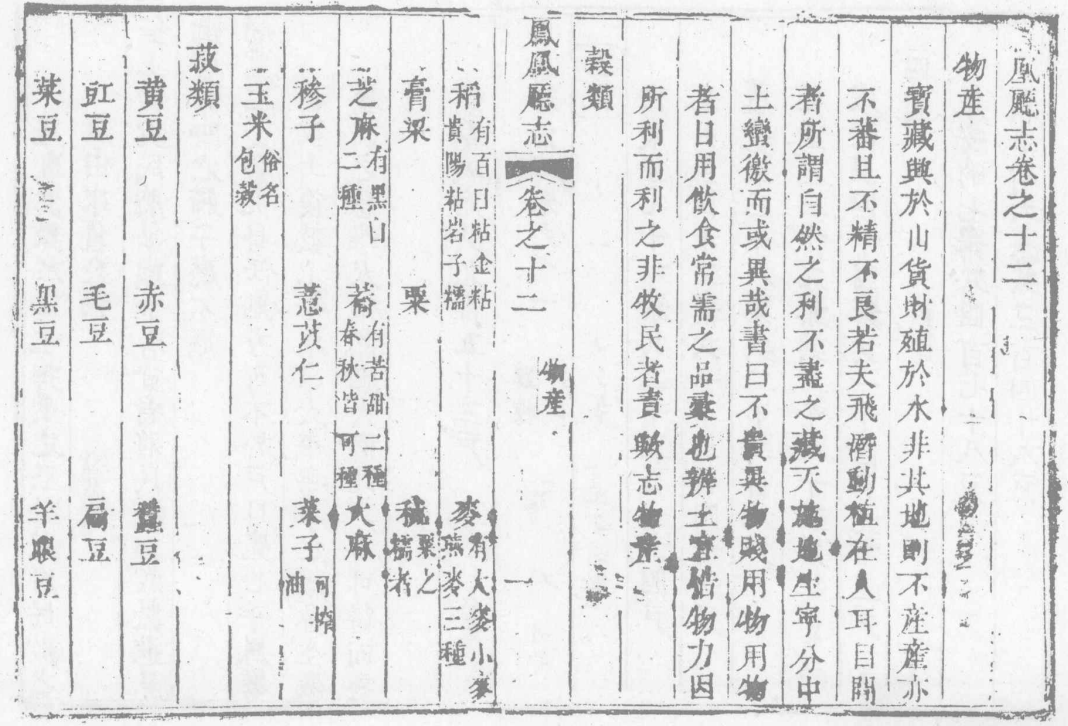 鳳凰廳志卷之十二
物產
寶藏興於山貨財殖於水非其地則不產產亦
不蕃且不精不良若夫飛潛動植在人耳目閒
者所謂自然之利不盡之藏天施地生寧分中
土蠻徼而或異哉書曰不貴異物賤用物用物
者日用飲食常需之品彙也辨土宜惜物力因
所利而利之非牧民者責歟志物產
穀類
鳳凰廳志 卷之十二 物產 一
稻有百日粘金粘貴陽粘岩子糯 麥有大麥小麥燕麥三種
膏粱 粟 秫粟之糯者
芝麻有黑白二種 蕎有苦甜二種春秋皆可種 火麻
穇子 薏苡仁 菜子可搾油
玉米俗名包穀
菽類
黃豆 赤豆 蠶豆
豇豆 毛豆 扁豆
菉豆 黑豆 羊眼豆